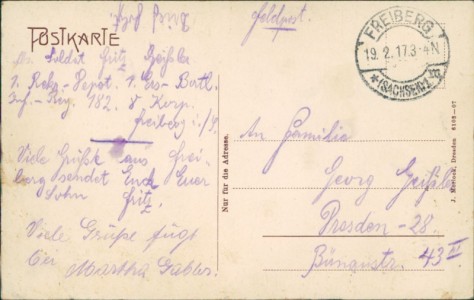 POSTKARTE
Feldpost.
FREIBERG
19.2.17.3-4N
*(SACHSEN)*
Soldat Fritz Geißler
1. Rekr.-Depot. 1. Ers-Batl.
Inf.-Reg. 182. 8. Korp.
Freiberg i/S.
Viele Grüße aus Frei-
berg sendet Euch Euer
Sohn Fritz.
Viele Grüße fügt
bei
Martha Gabler.
Nur für die Adresse.
An Familie
Georg Geißler
Dresden - 28.
Bünaustr. 43 II
J. Dresden 8108-07